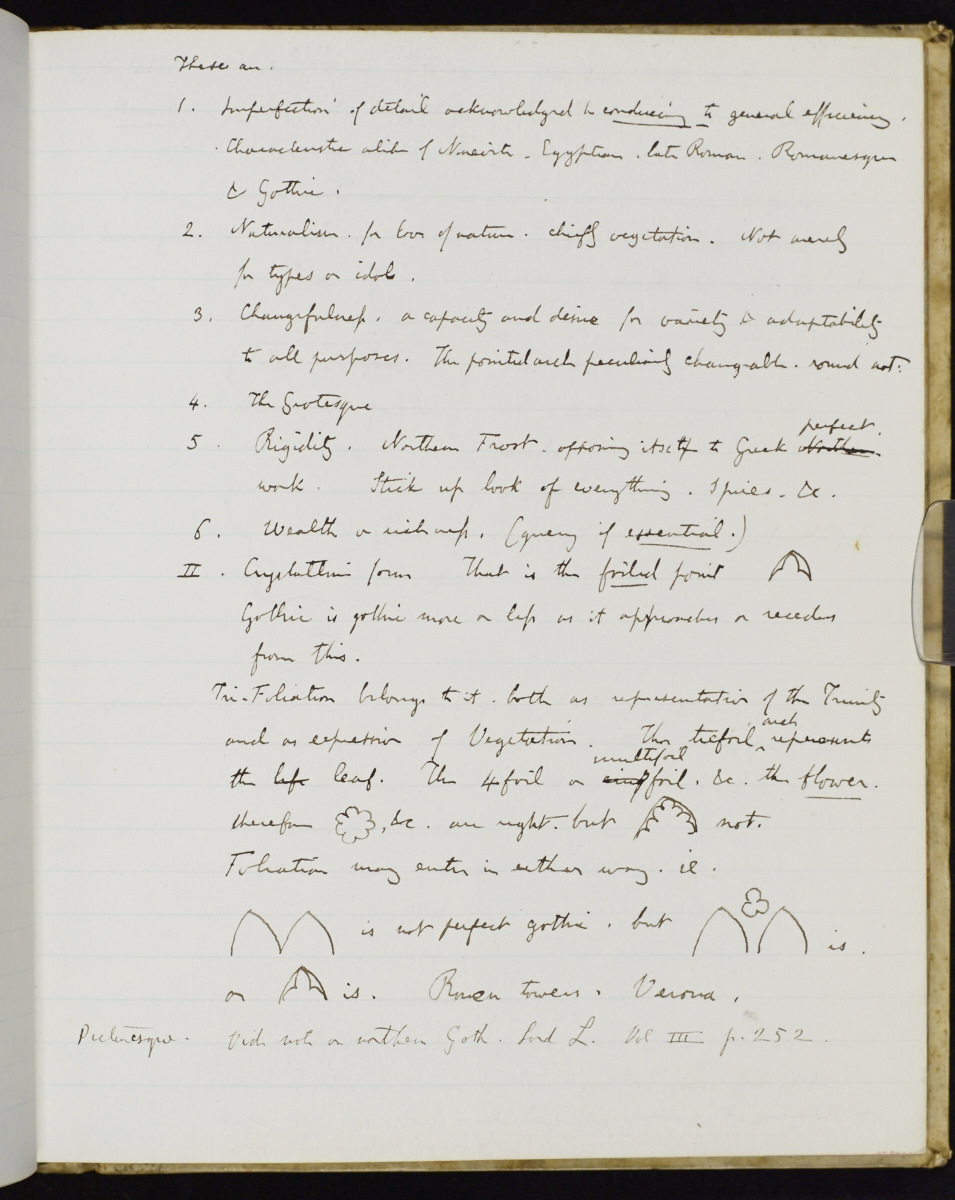 These are.
1. Imperfection of detail acknowledged & conducing to general efficiency.
Characteristic alike of Nineveh. Egyptian. late Roman. Romanesque
& Gothic.
2. Naturalism. for love of nature. chiefly vegetation. Not merely
for types or idols.
3. Changefulness. a capacity and desire for variety & adaptability
to all purposes. The pointed arch peculiarly changeable. round not.
4. The Grotesque
perfect.
5. Rigidity. Northern Frost. opposing itself to Greek Northern.
work. Stick up look of everything. Spires. &c.
6. Wealth or richness. (query if essential.)
II. Crystalline form That is the foiled point
Gothic is gothic more or less as it approaches or recedes
from this.
Tri-Foliation belongs to it. both as representation of the Trinity
and as expression of Vegetation. The trefoil arch represents
the leaf. The 4foil or multifoil foil. &c. the flower.
therefore , &c. are right. but not.
Foliation may enter in either way. ie.
is not perfect gothic. but is.
or is. Rouen towers. Verona.
Picturesque. Vide note on northern Goth. Lord L. Vol III p. 252.